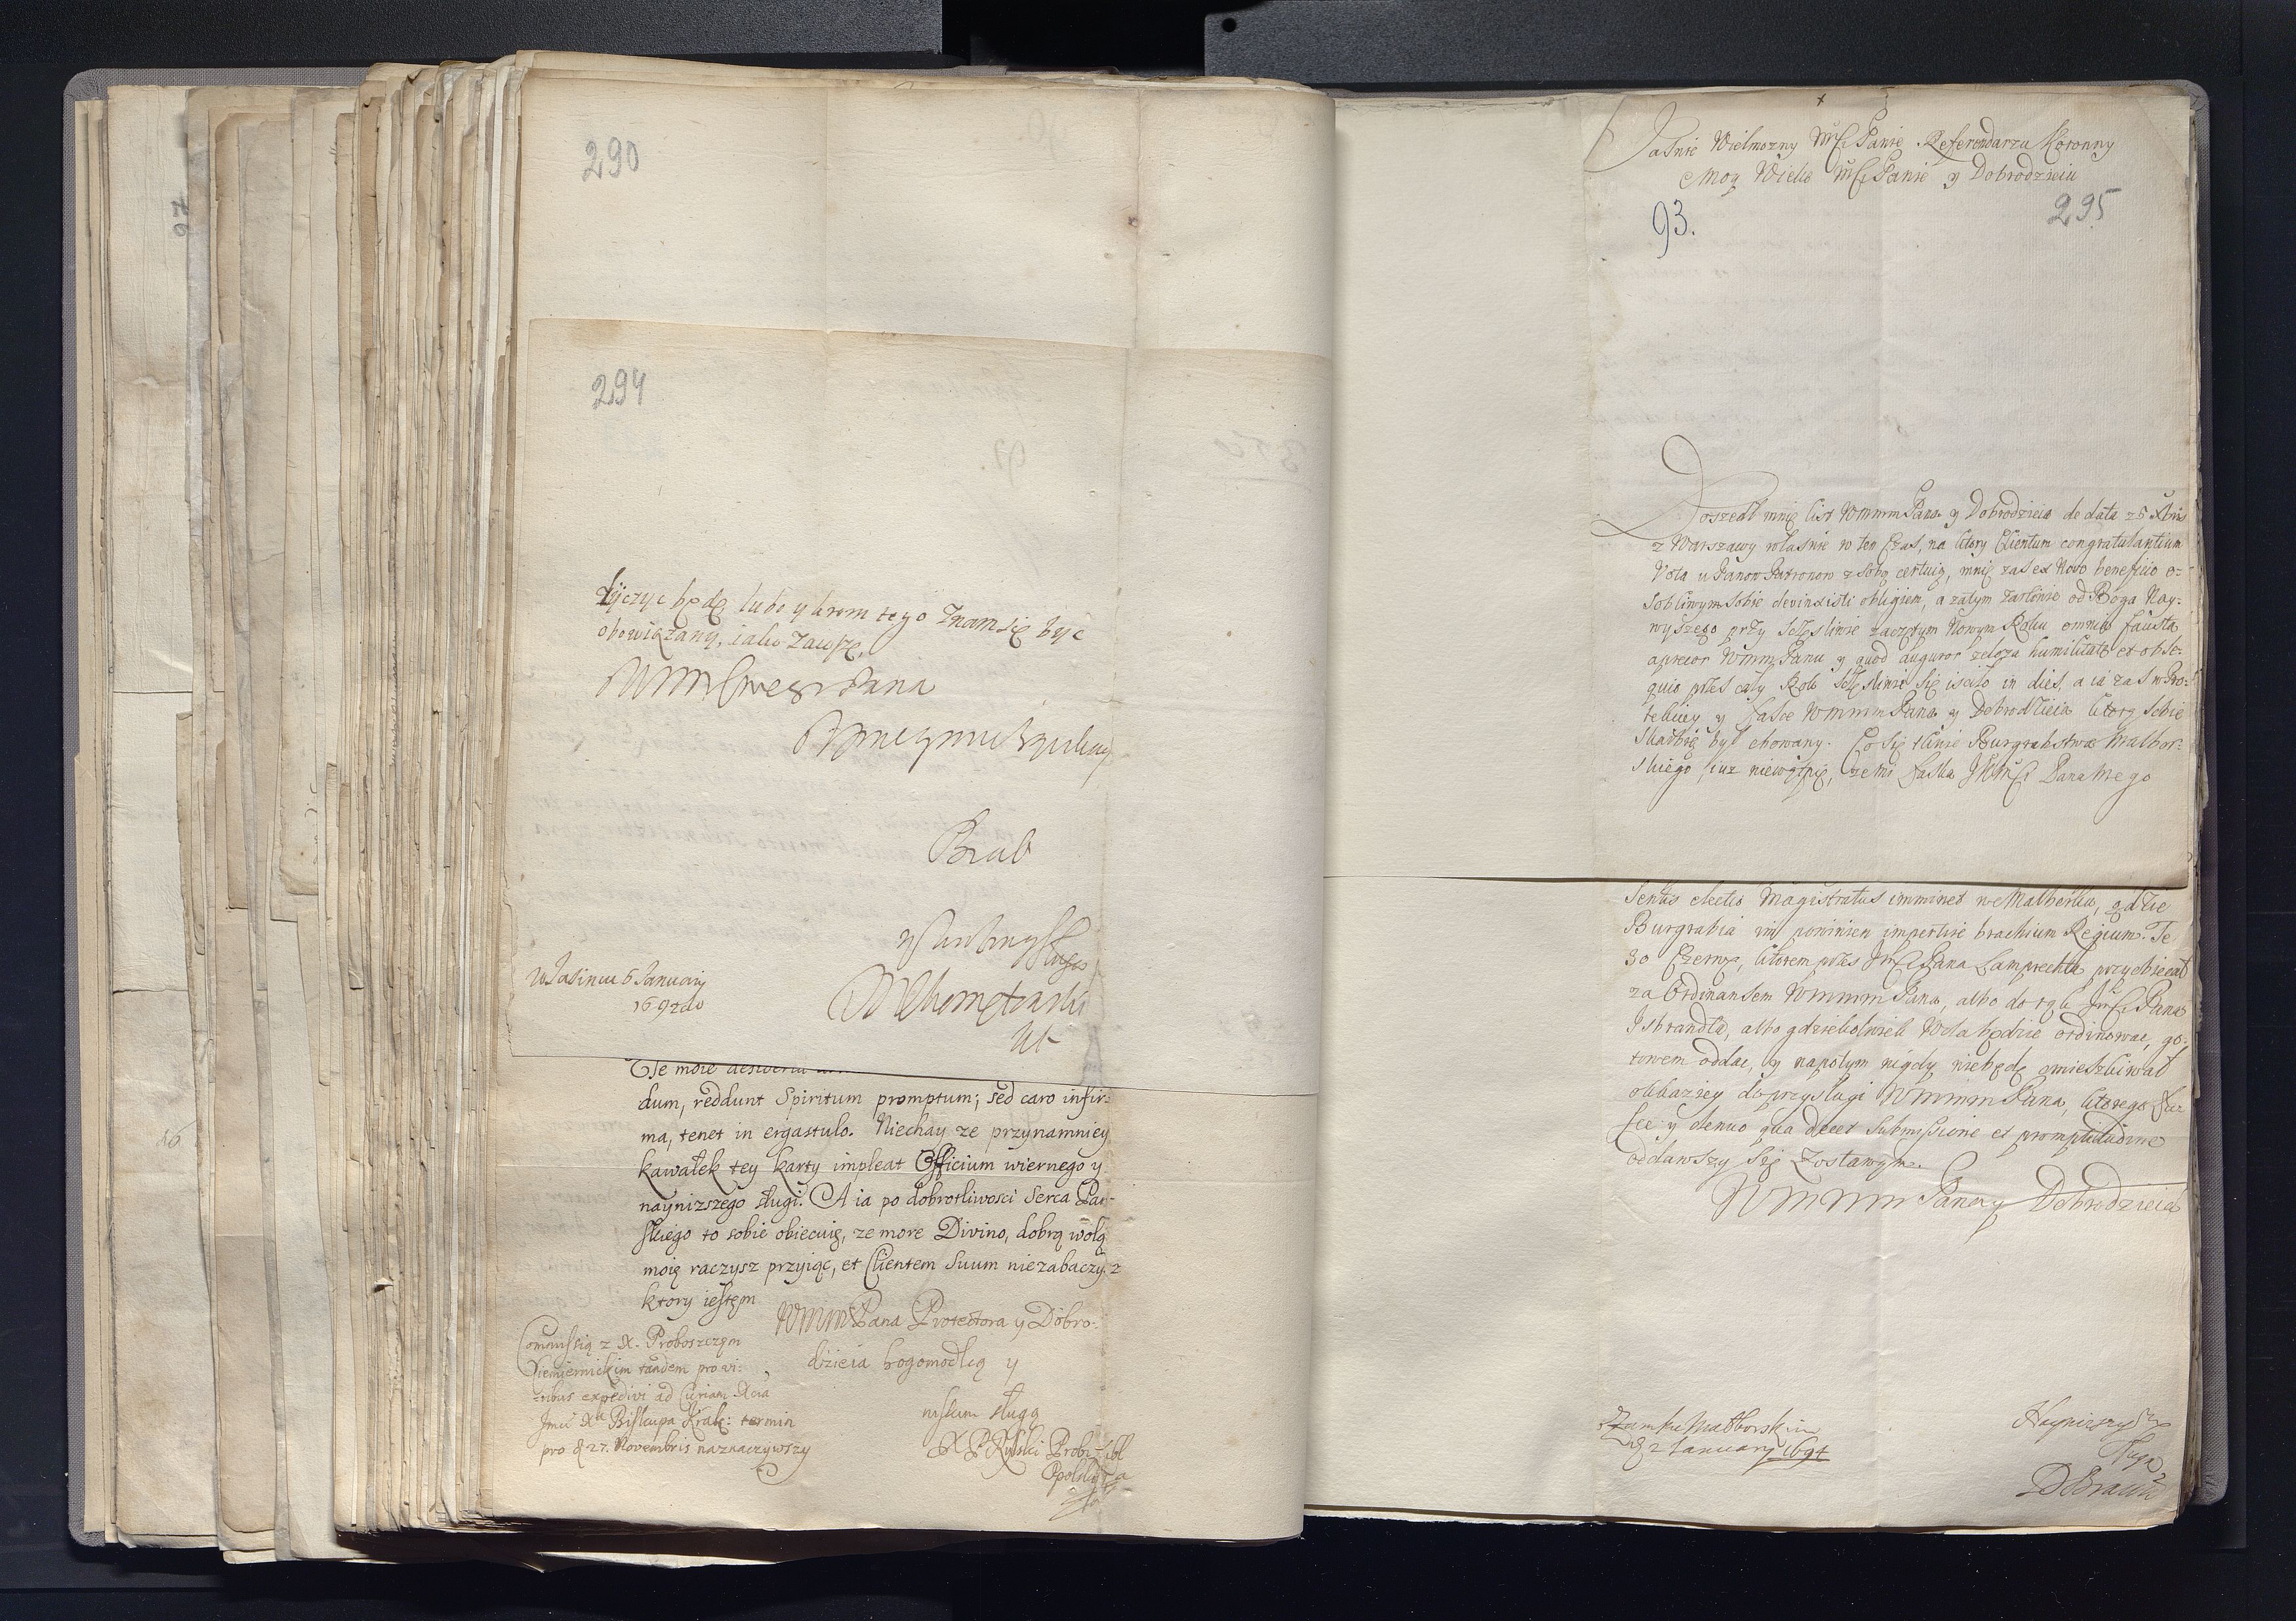 290
294
życzyc będę lubo y krom tego znam się byc
obowiązany, iako zawsze,
Brat
w Jasiniu 6 January
dum, reddunt Spiritum promptum; sed caro infir-
ma, tenet in ergastulo. Niechay ze przynamniey
kawałek tey karty impleat Officium wiernego y
naynizszego sługi. A ia po dobrotliwosci Serca Pań-
skiego to sobie obiecuię, ze more Divino, dobrą wolą
moię raczysz przyiąc, et Clientem Suum niezabaczysz
ktory iestęm
WMM Pana Protectora y Dobro-
dzieia bogomodlcą y
niskim sługą
Commissią z X. Proboszczęm
tandem
expedivi ad Curiam Xcia
Jmci Xa Biskupa Krak: termin
pro d 27. Novembris naznaczywszy
Jasnie Wielmozny Mci Panie Referendarzu Koronny
Moy Wielce Mci Panie y Dobrodzieiu
93.
295
Doszedł mnię list WMMM Pana y Dobrodzieia de data 25 Xbris
z Warszawy własnie w ten czas, na ktory Clientum congratulantium
Vota u Panow Patronow z sobą certuią, mnię zas ex novo beneficio o-
sobliwym sobie devinxisti obligiem, a zatym zarłwie od Boga Nay-
wyszego przy szczęsliwie zaczętym Nowym Roku omnia fausta
apprecor WMM Panu y quod auguror zeloza humilitate et obse-
quio przes cały Rok szczęsliwie się iscieło in dies, a ia zas w Pro-
tekciey y łasce WMMM Pana y Dobrodzieia ktorą sobie
skarbię był chowany. Co się tknie Burgrabstwa Malbor-
skiego, iuz niewątpię, ze mi łaska JKMci Pana Mego
sentis electio Magistratus imminet w Malborku, gdzie
Burgrabia im powinien impertire brachium Regium. Te
30 Czerw, ktorem przes Jmci Pana Lamprechta przyobiecał
za Ordinansem WMMM Pana, albo do rąk Jmci Pana
Isbrandta, albo gdziekolwiek Wola będzie ordinowac, go-
towem oddac, y napotym nigdy niebędę omieszkiwał
okkaziey do przysługi WMMM Pana, ktorego łas
ce y denuo qua decet Submissione et promptitudine
oddawszy się zostawym.
WMMM Pana y Dobrodzieia
z Zamku Malborskim
d 2 January 1694
Naynizszy
sługa